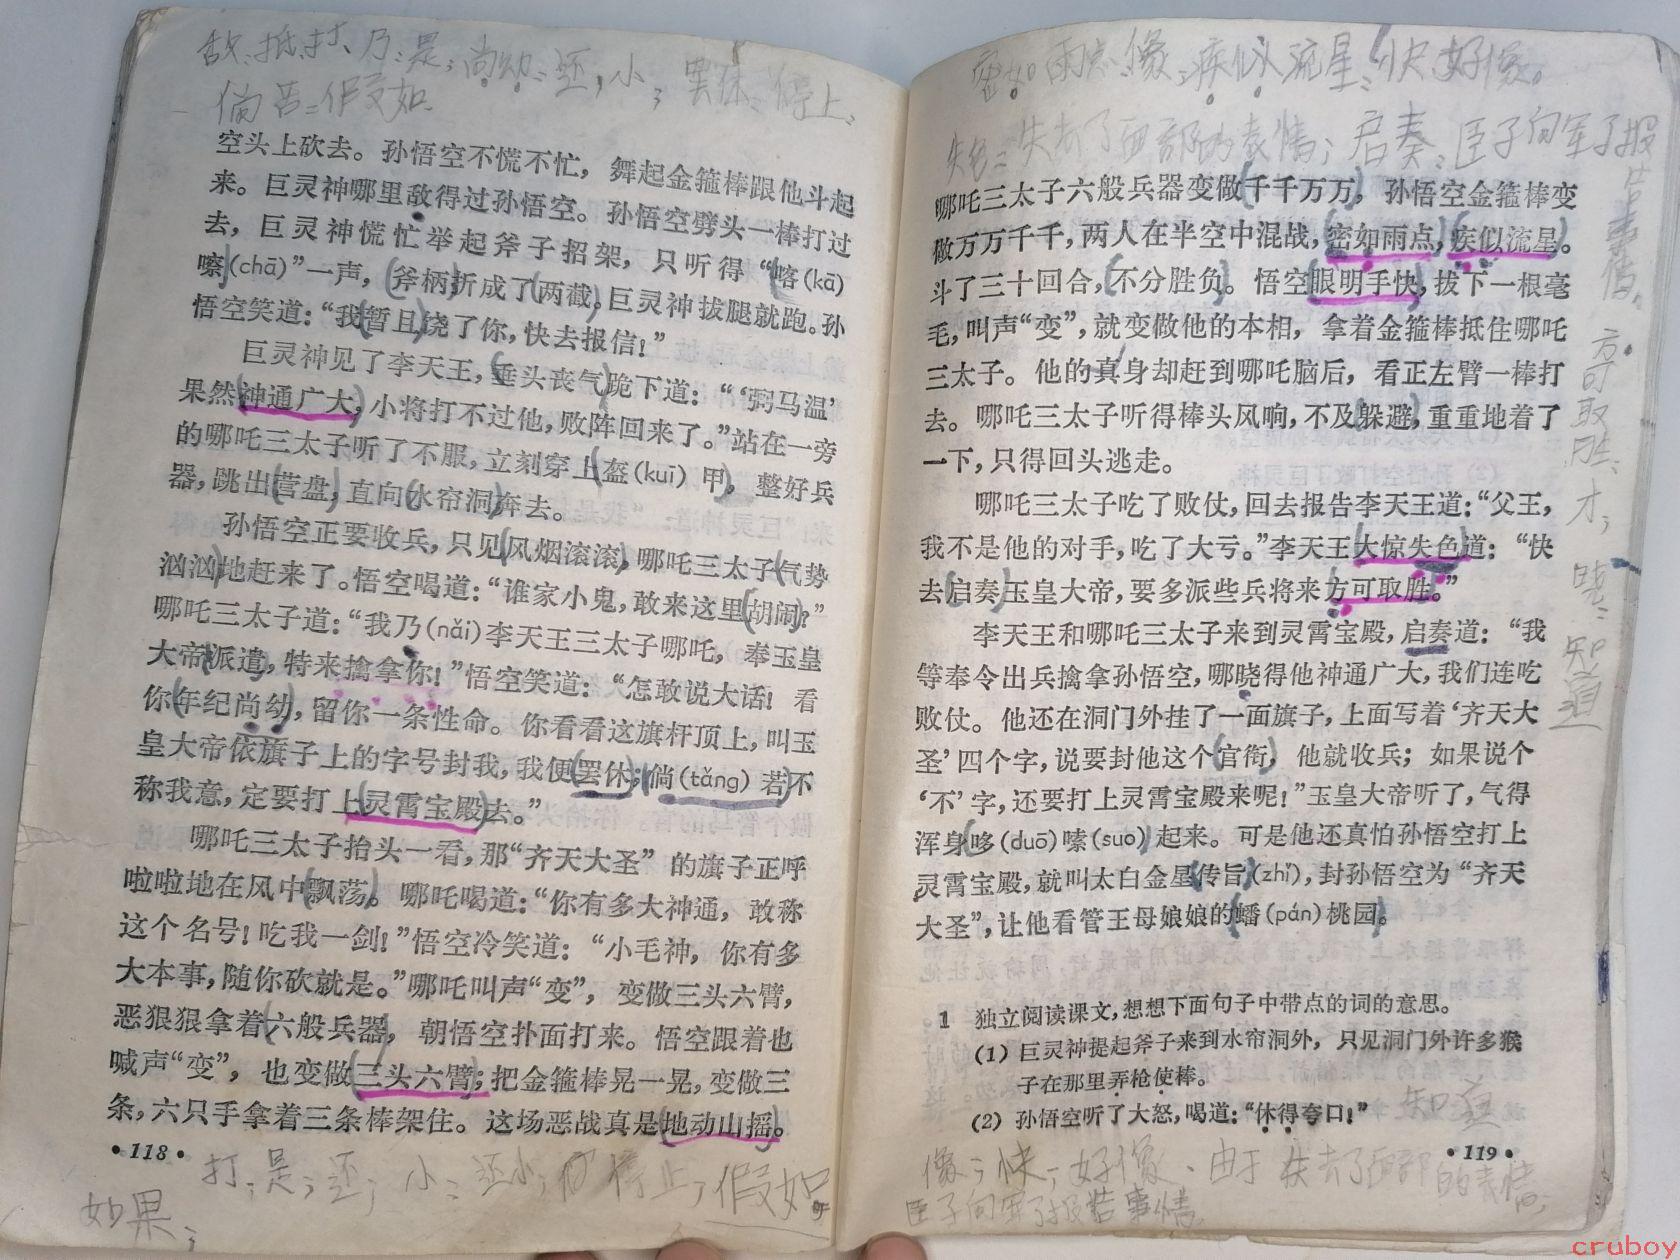 敌:抵、打、乃:是;尚幼:还,小;罢休:停止、
倘若:假如.
空头上砍去。孙悟空不慌不忙,舞起金箍棒跟他斗起
来。巨灵神哪里敌得过孙悟空。孙悟空劈头一棒打过
去,巨灵神慌忙举起斧子招架,只听得“喀(kā)
嚓(chā)”一声,斧柄折成了两截。巨灵神拔腿就跑。孙
悟空笑道:“我暂且饶了你,快去报信!”
巨灵神见了李天王,垂头丧气跪下道:“‘弼马温’
果然神通广大,小将打不过他,败阵回来了。”站在一旁
的哪吒三太子听了不服,立刻穿上盔(kuī)甲,整好兵
器,跳出营盘,直向水帘洞奔去。
孙悟空正要收兵,只见风烟滚滚,哪吒三太子气势
汹汹地赶来了。悟空喝道:“谁家小鬼,敢来这里胡闹?”
哪吒三太子道:“我乃(nǎi)李天王三太子哪吒,奉玉皇
大帝派遣,特来擒拿你!”悟空笑道:“怎敢说大话!看
你年纪尚幼,留你一条性命。你看看这旗杆顶上,叫玉
皇大帝依旗子上的字号封我,我便罢休;倘(tǎng)若不
称我意,定要打上灵霄宝殿去。”
哪吒三太子抬头一看,那“齐天大圣”的旗子正呼
啦啦地在风中飘荡。哪吒喝道:“你有多大神通,敢称
这个名号!吃我一剑!”悟空冷笑道:“小毛神,你有多
大本事,随你砍就是。”哪吒叫声“变”,变做三头六臂,
恶狠狠拿着六般兵器,朝悟空扑面打来。悟空跟着也
喊声“变”,也变做三头六臂;把金箍棒晃一晃,变做三
条,六只手拿着三条棒架住。这场恶战真是地动山摇。
•118•
打;是;还;小;还小;停止;假如
如果;
密如雨点:像;疾似流星:快好像。
失色:失去了面部的表情;启奏:臣子向军了报
告事情。
方可取胜:才;
晓:知道
哪吒三太子六般兵器变做千千万万,孙悟空金箍棒变
做万万千千,两人在半空中混战,密如雨点,疾似流星。
斗了三十回合,不分胜负。悟空眼明手快,拔下一根毫
毛,叫声“变”,就变做他的本相,拿着金箍棒抵住哪吒
三太子。他的真身却赶到哪吒脑后,看正左臂一棒打
去。哪吒三太子听得棒头风响,不及躲避,重重地着了
一下,只得回头逃走。
哪吒三太子吃了败仗,回去报告李天王道:“父王,
我不是他的对手,吃了大亏。”李天王大惊失色道:“快
去启奏玉皇大帝,要多派些兵将来方可取胜。”
李天王和哪吒三太子来到灵霄宝殿,启奏道:“我
等奉令出兵擒拿孙悟空,哪晓得他神通广大,我们连吃
败仗。他还在洞门外挂了一面旗子,上面写着‘齐天大
圣’四个字,说要封他这个官衔,他就收兵;如果说个
‘不’字,还要打上灵霄宝殿来呢!”玉皇大帝听了,气得
浑身哆(duō)嗦(suo)起来。可是他还真怕孙悟空打上
灵霄宝殿,就叫太白金星传旨(zhǐ),封孙悟空为“齐天
大圣”,让他看管王母娘娘的蟠(pán)桃园。
1 独立阅读课文,想想下面句子中带点的词的意思。
(1) 巨灵神提起斧子来到水帘洞外,只见洞门外许多猴
子在那里弄枪使棒。
(2) 孙悟空听了大怒,喝道:“休得夸口!”
知道
•119•
像;快;好像、由于失去了面部的表情;
臣子向军了报告事情
cruboy